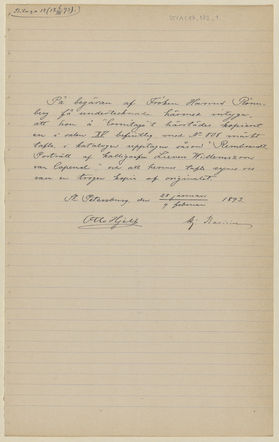 På begäran af Fröken Hanna Rönn-
berg får undertecknade härmed intyga
att hon å "Eremitage't härstädes kopierat
en i salen IV befintlig med No 808 märkt
tafla i katalogen upptagen såsom "Rembrandt
Porträtt af kalligrafen Lieven Willemszoon
van Copenol" och att hennes tafla synes oss
vara en trogen kopia af originalet
St. Petersburg den 28 januari / 9 februari 1893
Otto Hjelt